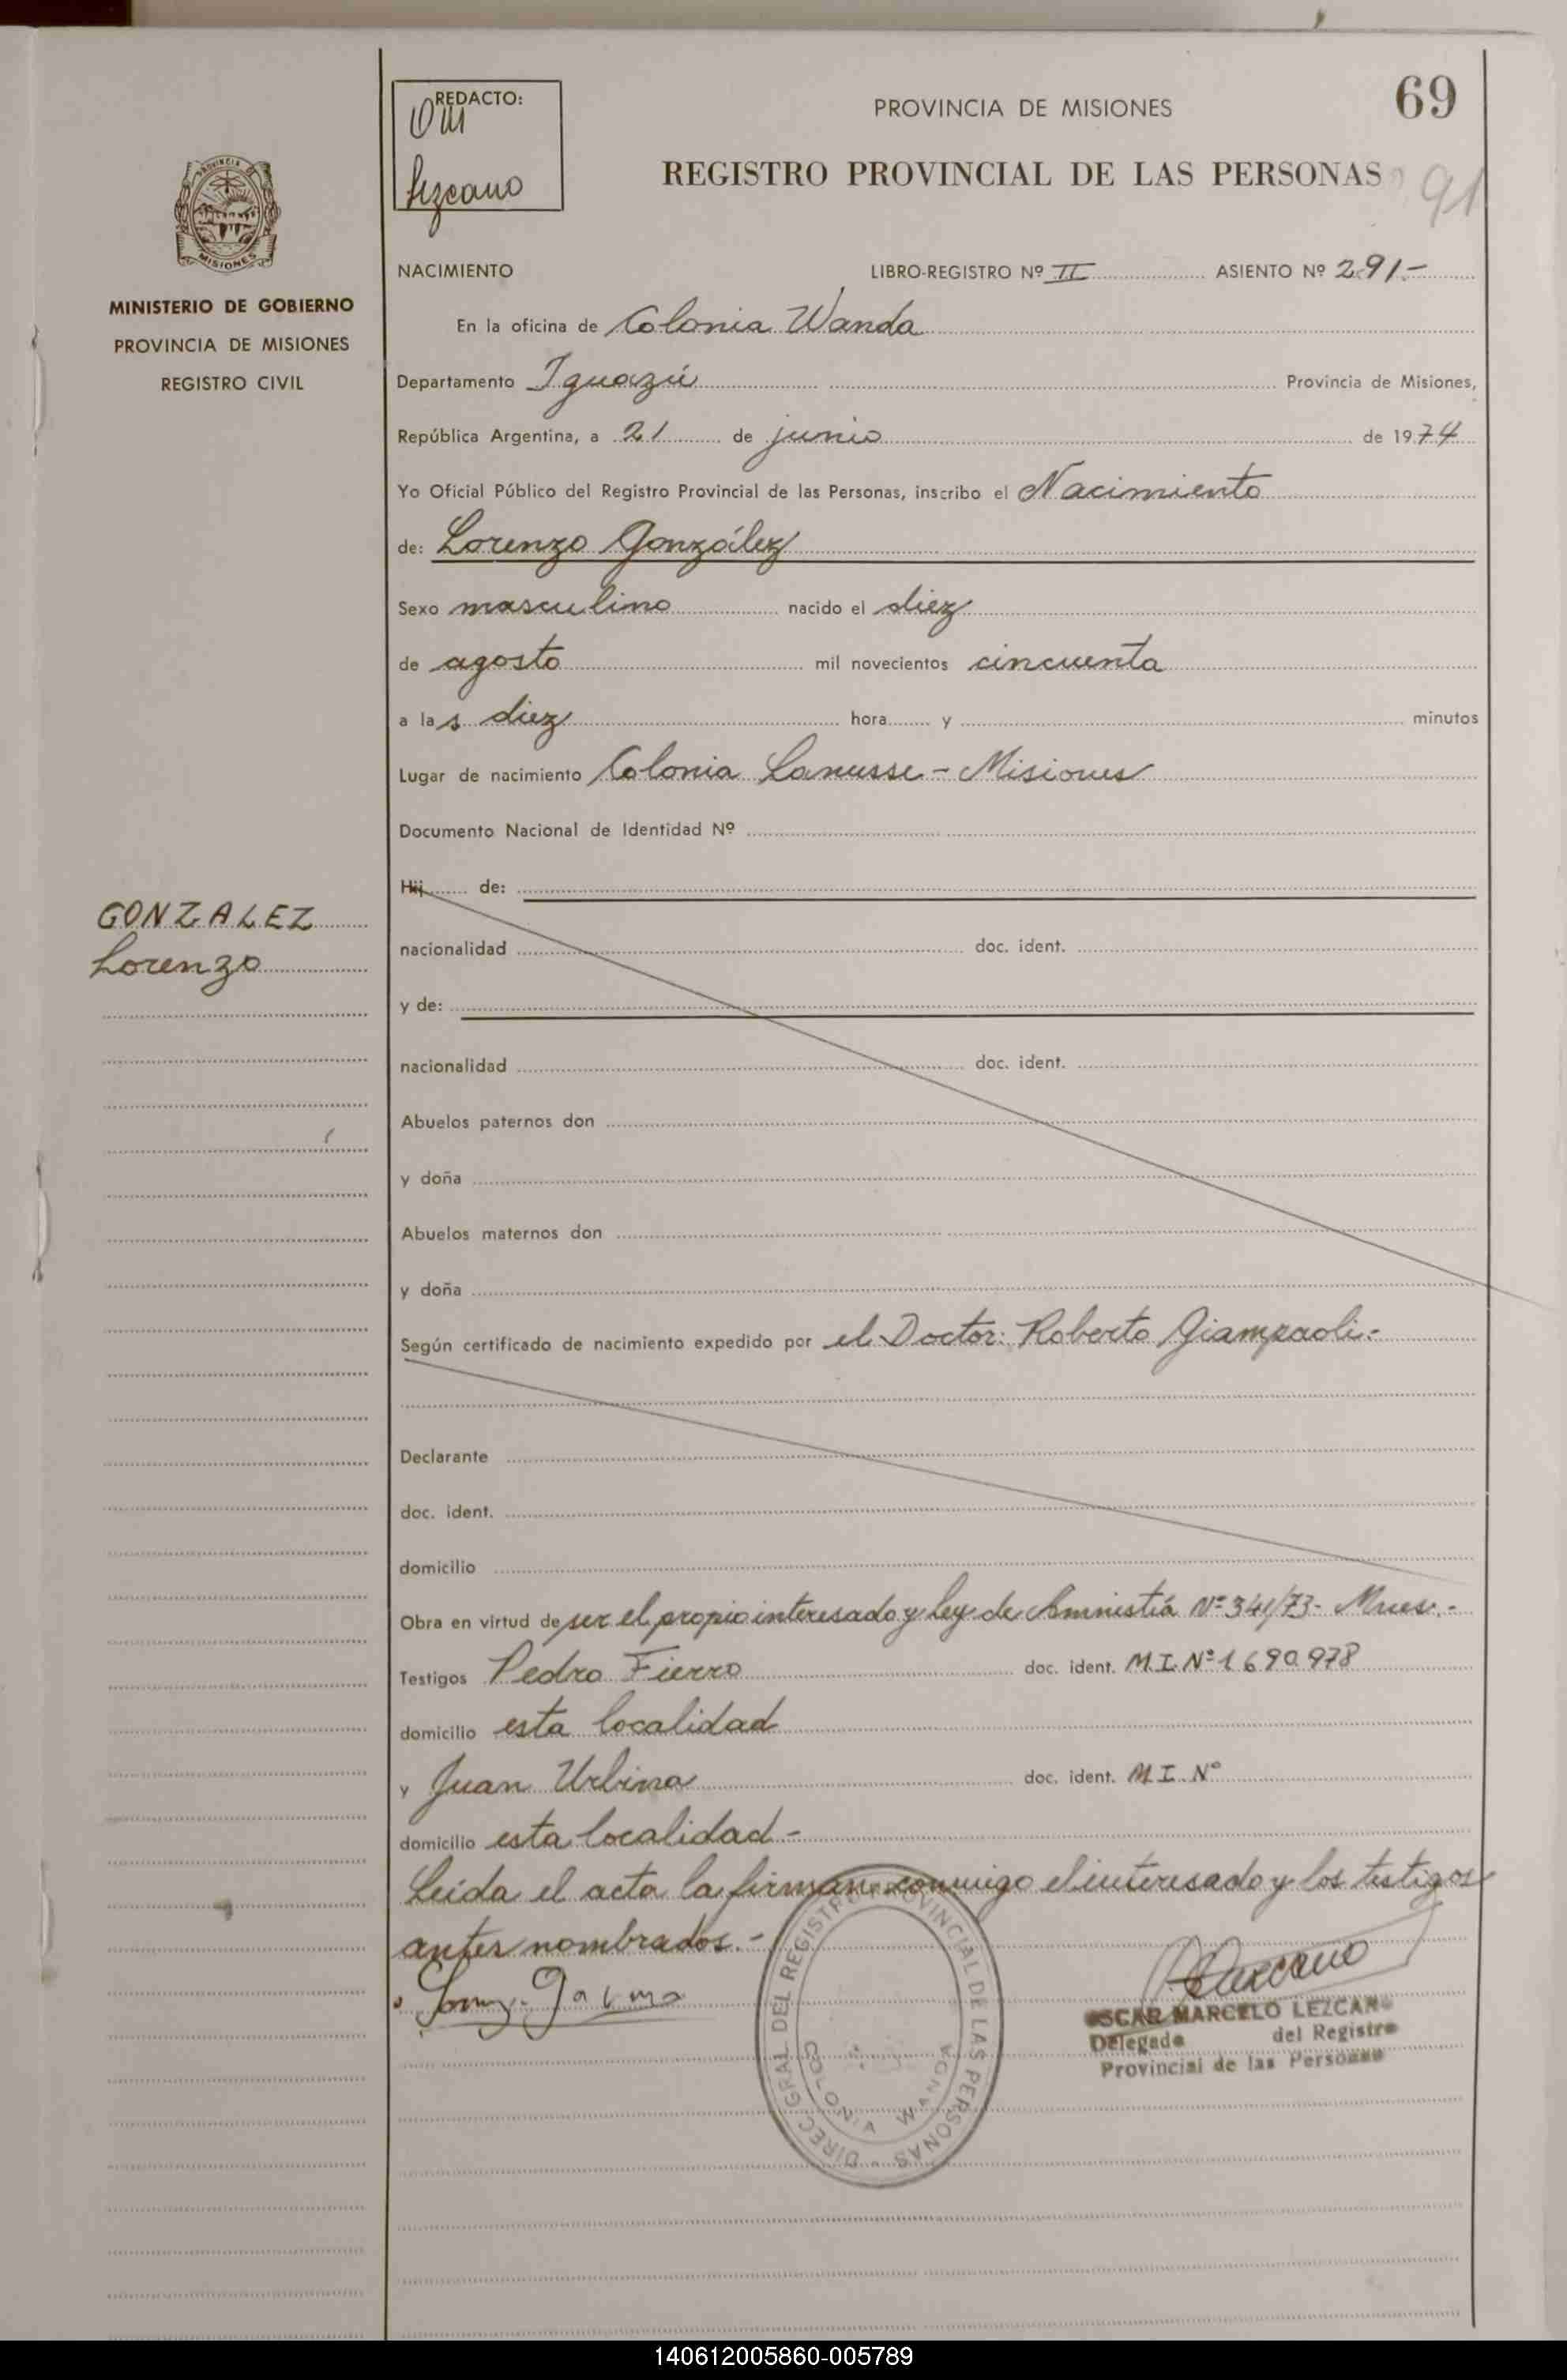 REDACTO:
OM
Lezcano
PROVINCIA DE MISIONES
69
REGISTRO PROVINCIAL DE LAS PERSONAS
91
PROVINCIA
MISIONES
MINISTERIO DE GOBIERNO
PROVINCIA DE MISIONES
REGISTRO CIVIL
NACIMIENTO LIBRO-REGISTRO Nº II ASIENTO Nº 291.-
En la oficina de Colonia Wanda
Departamento Iguazú Provincia de Misiones,
República Argentina, a 21 de junio de 1974
Yo Oficial Público del Registro Provincial de las Personas, inscribo el Nacimiento
de: Lorenzo González
Sexo masculino nacido el diez
de agosto mil novecientos cincuenta
a las diez hora y minutos
Lugar de nacimiento Colonia Lanusse - Misiones
Documento Nacional de Identidad Nº
GONZALEZ
Lorenzo
Hij de:
nacionalidad doc. ident.
y de:
nacionalidad doc. ident.
Abuelos paternos don
y doña
Abuelos maternos don
y doña
Según certificado de nacimiento expedido por el Doctor: Roberto Giampaoli.-
Declarante
doc. ident.
domicilio
Obra en virtud de ser el propio interesado y Ley de Amnistía Nº 341/73- Mnes.-
Testigos Pedro Fierro doc. ident. M.I. Nº 1690978
domicilio esta localidad
y Juan Urbina doc. ident. M.I. Nº
domicilio esta localidad -
Leída el acta la firman conmigo el interesado y los testigos
antes nombrados.-
DIREC. GRAL DEL REGISTRO PROVINCIAL DE LAS PERSONAS
COLONIA WANDA
Lezcano
OSCAR MARCELO LEZCANO
Delegado del Registro
Provincial de las Personas
140612005860-005789